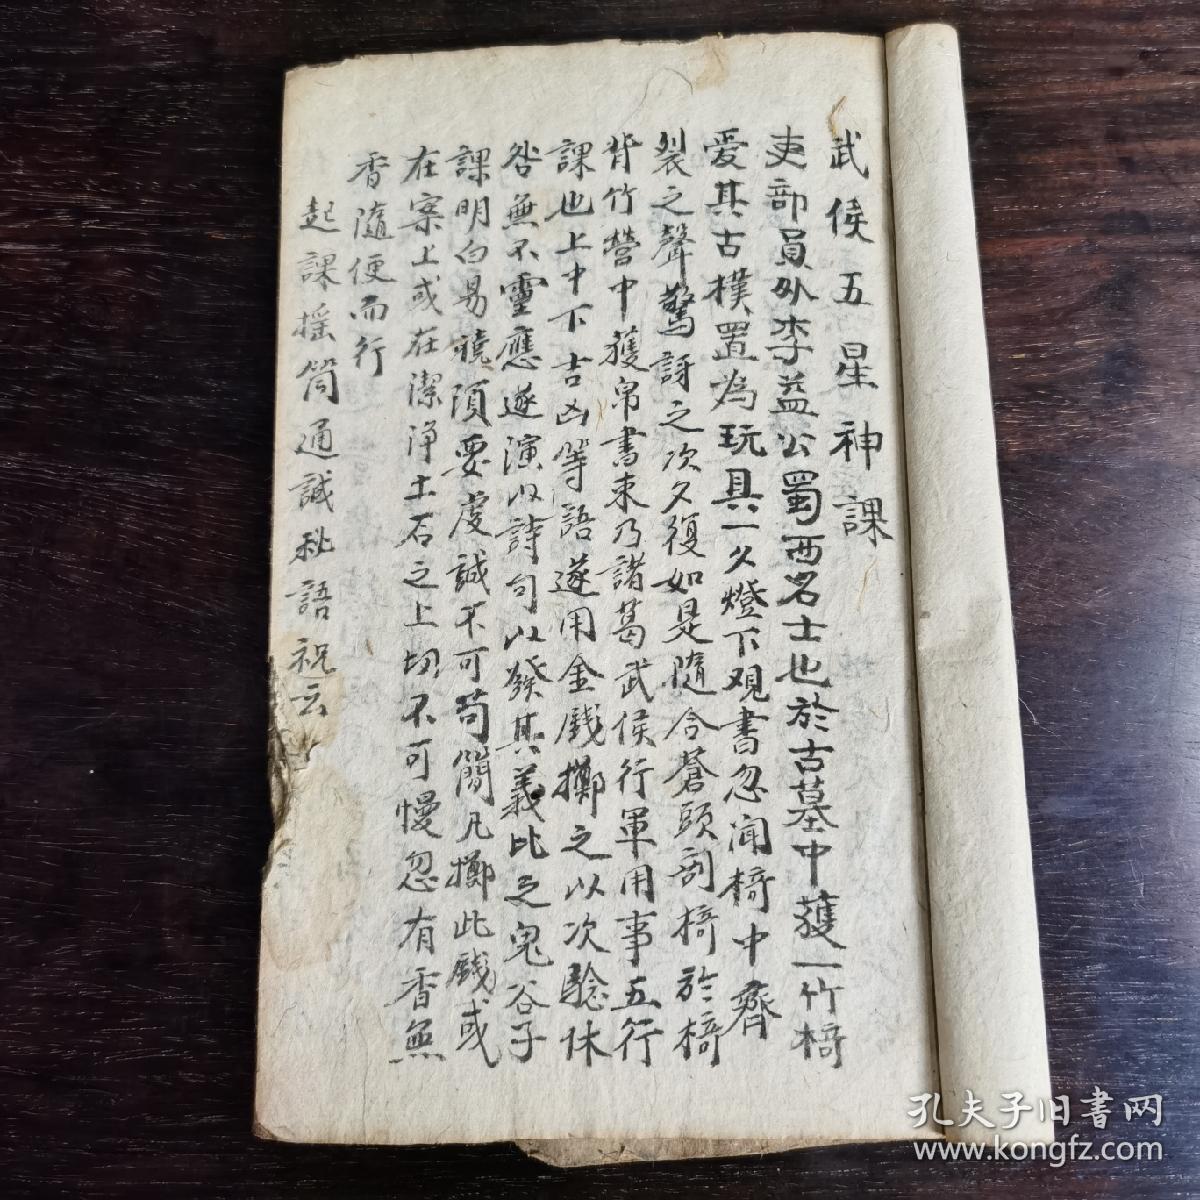 武侯五星神課
吏部員外李益公蜀西名士也於古墓中獲一竹椅
爱其古樸置為玩具一夕燈下观書忽闻椅中齊
裂之聲驚訝之次夕復如是隨令蒼頭剖椅於椅
背竹营中獲帛書束乃諸葛武侯行軍用事五行
課也上中下吉凶等語遂用金錢擲之以次騐休
咎無不靈應遂演以詩句以發其義比之鬼谷子
課明白易曉須要虔誠不可苟簡凡擲此錢或
在案上或在潔净土石之上切不可慢忽有香無
香隨便而行
起課摇筒通誠秘語祝云
孔夫子旧書网
www.kongfz.com